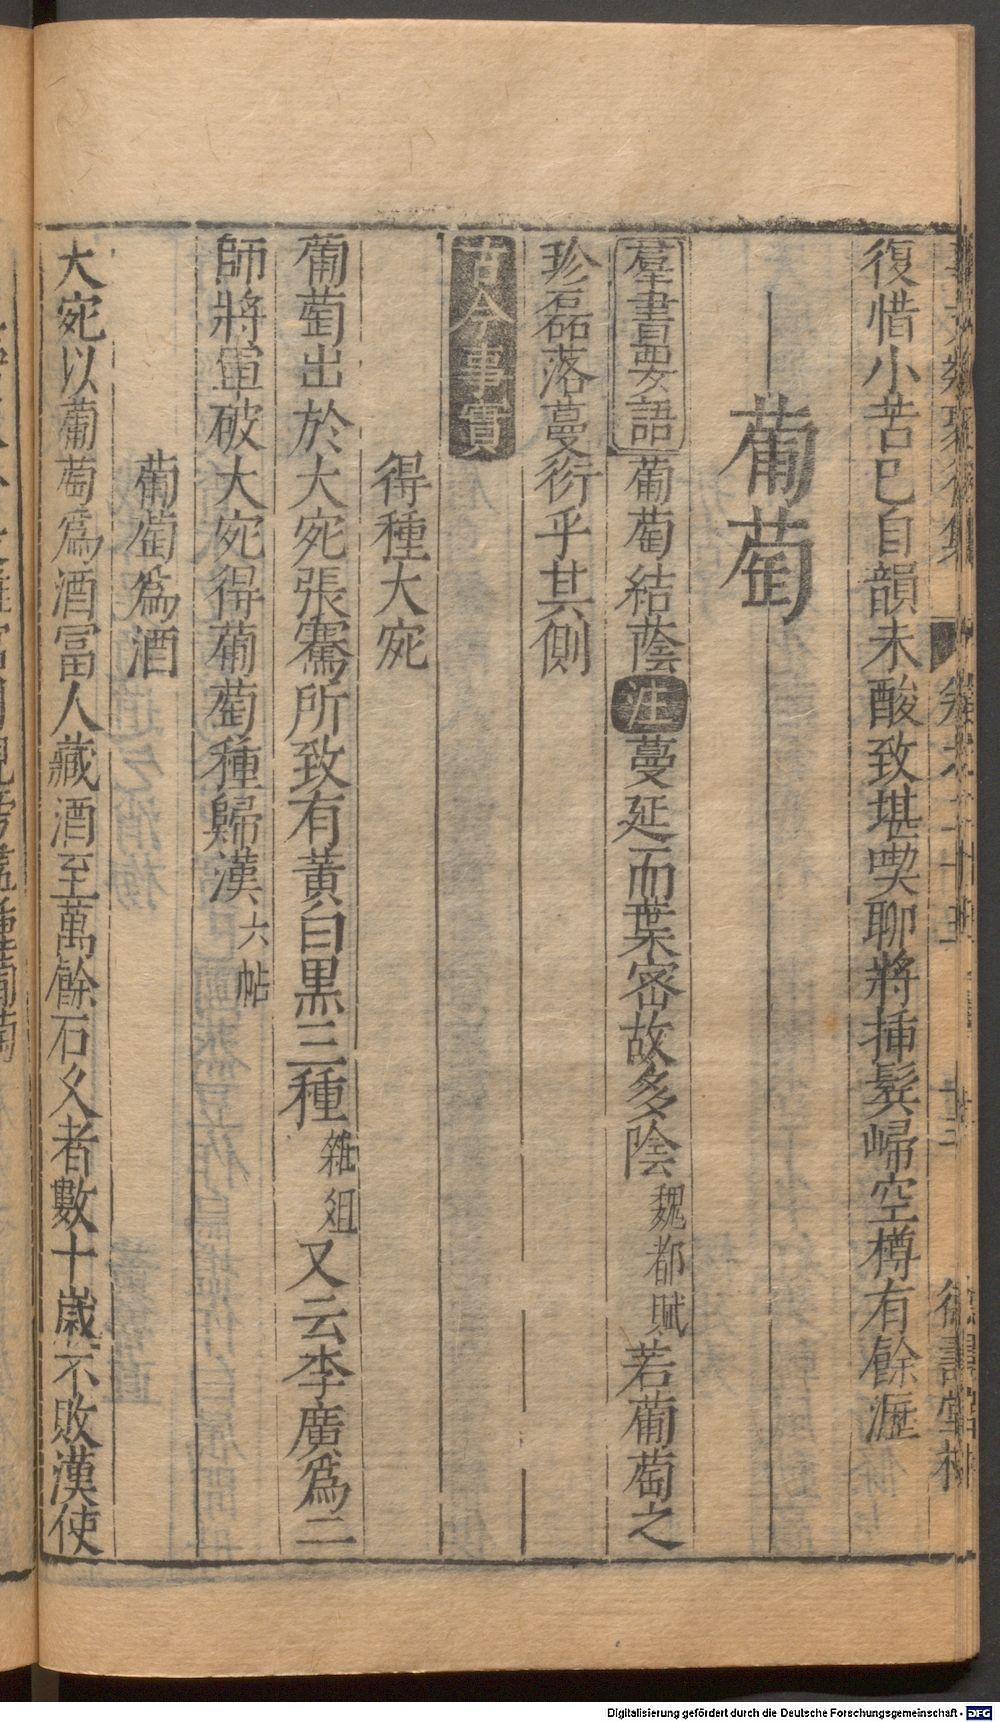 復惜小苦已自韻未酸致堪喫聊將揷鬂歸空樽有餘瀝
葡萄
羣書要語葡萄結蔭注蔓延而葉密故多陰魏都賦若葡萄之
珍磊落蔓衍乎其側
古今事實
得種大宛
葡萄出於大宛張騫所致有黃白黑三種雜俎又云李廣爲二
師將軍破大宛得葡萄種歸漢六帖
葡萄爲酒
大宛以葡萄爲酒冨人藏酒至萬餘石久者數十歲不敗漢使
Digitalisierung gefördert durch die Deutsche Forschungsgemeinschaft - DFG